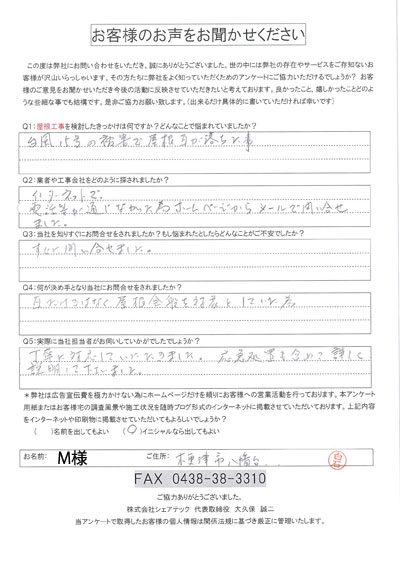 お客様のお声をお聞かせください
この度は弊社にお問い合わせをいただき、誠にありがとうございました。世の中には弊社の存在やサービスをご存知ないお
客様が沢山いらっしゃいます。その方たちに弊社をよく知っていただくためのアンケートにご協力いただけるでしょうか？ お客
様のご意見をお聞かせいただき今後の活動に反映させていただきたいと考えております。良かったこと、嬉しかったことどのよ
うな些細な事でも結構です。是非ご協力お願い致します。（出来るだけ具体的に書いていただければ幸いです）
Q1：屋根工事を検討したきっかけは何ですか？どんなことで悩まれていましたか？
台風15号の被害で屋根瓦が落ちた事
Q2：業者や工事会社をどのように探されましたか？
インターネットで。
電話等が通じなかった為ホームページからメールで問い合せ
ました。
Q3：当社を知りすぐにお問合せをされましたか？もし悩まれたとしたらどんなことがご不安でしたか？
すぐに問い合せました。
Q4：何が決め手となり当社にお問合せをされましたか？
瓦だけではなく屋根全般を対象としている為
Q5：実際に当社担当者がお伺いしていかがでしたでしょうか？
丁寧に対応していただきました。応急処置も含めて詳しく
説明して下さいました。
＊弊社は広告宣伝費を極力かけない為にホームページだけを頼りにお客様への営業活動を行っております。本アンケート
用紙またはお客様宅の調査風景や施工状況を随時ブログ形式のインターネットに掲載させていただいております。上記内容
をインターネットや印刷物に掲載させていただいてもよろしいでしょうか？
（ ）名前を出してもよい （○）イニシャルなら出してもよい
お名前： M様 ご住所： 木更津市八幡台
FAX 0438-38-3310
ご協力ありがとうございました。
株式会社シェアテック 代表取締役 大久保 誠二
当アンケートで取得したお客様の個人情報は関係法規に基づき厳正に管理いたします。